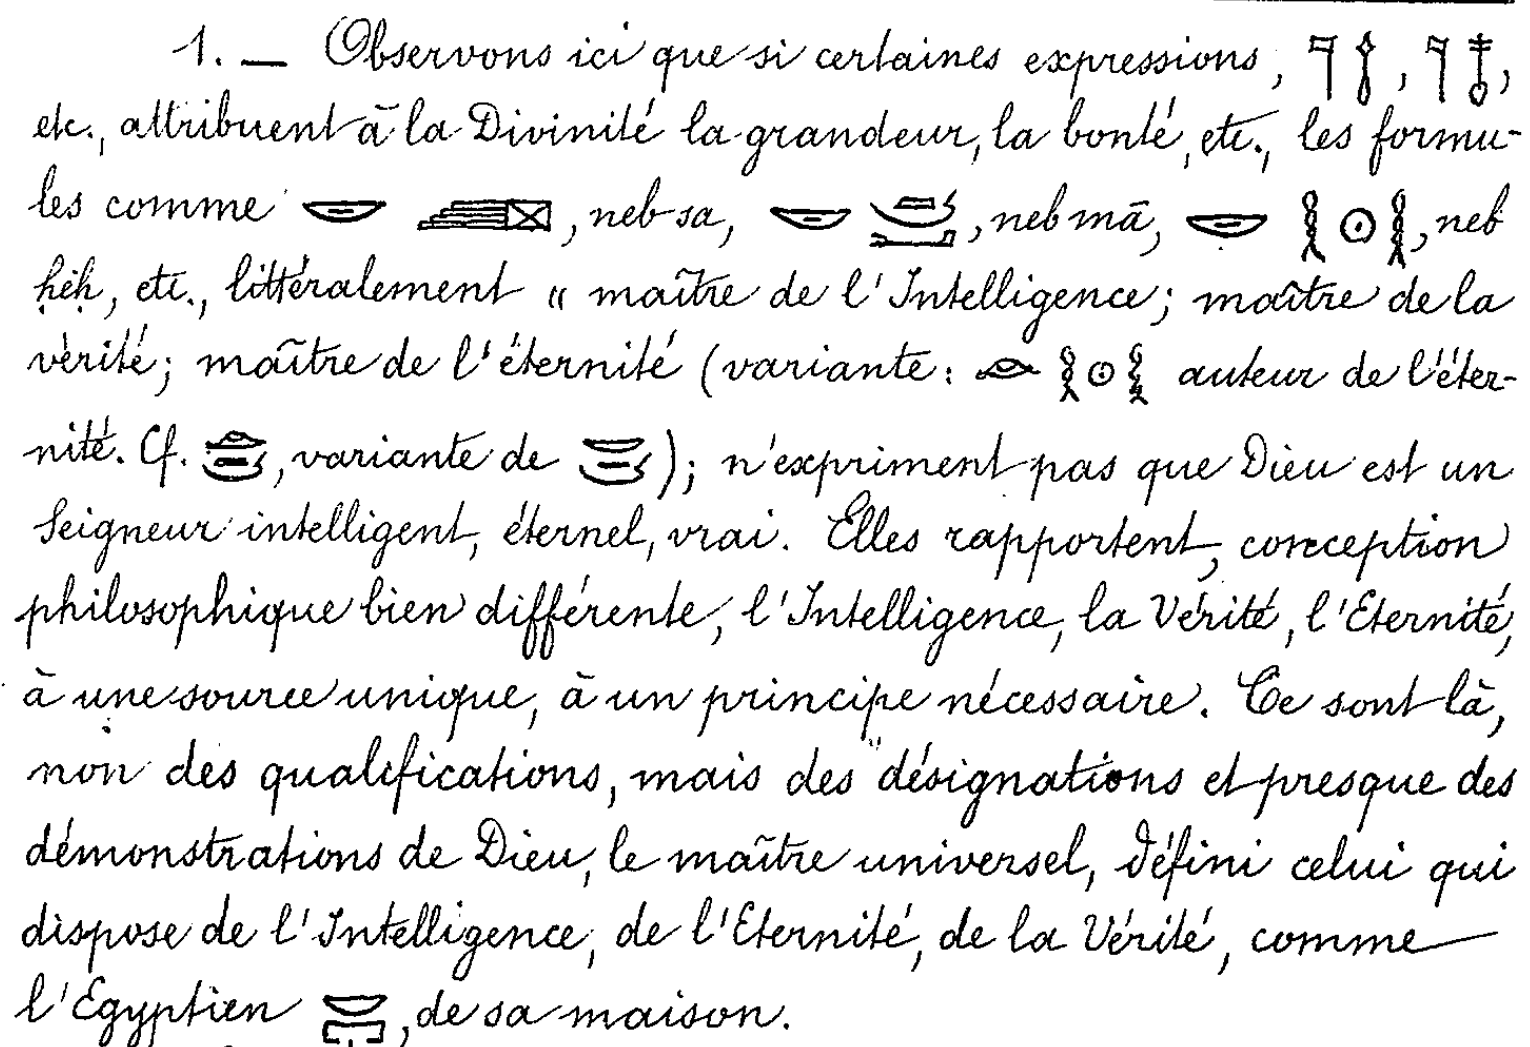 1. — Observons ici que si certaines expressions, 𓊹, 𓊹𓄤,
etc., attribuent à la Divinité la grandeur, la bonté, etc., les formu-
les comme 𓎟, neb sa, 𓎟, neb mā, 𓎟 𓎛𓇳𓎛, neb
ḥeḥ, etc., littéralement « maître de l'Intelligence; maître de la
vérité; maître de l'éternité (variante: 𓁹 𓎛𓇳𓎛 auteur de l'éter-
nité. Cf. , variante de ); n'expriment pas que Dieu est un
Seigneur intelligent, éternel, vrai. Elles rapportent, conception
philosophique bien différente, l'Intelligence, la Vérité, l'Eternité,
à une source unique, à un principe nécessaire. Ce sont là,
non des qualifications, mais des désignations et presque des
démonstrations de Dieu, le maître universel, défini celui qui
dispose de l'Intelligence, de l'Eternité, de la Vérité, comme
l'Egyptien 𓎟𓉐, de sa maison.